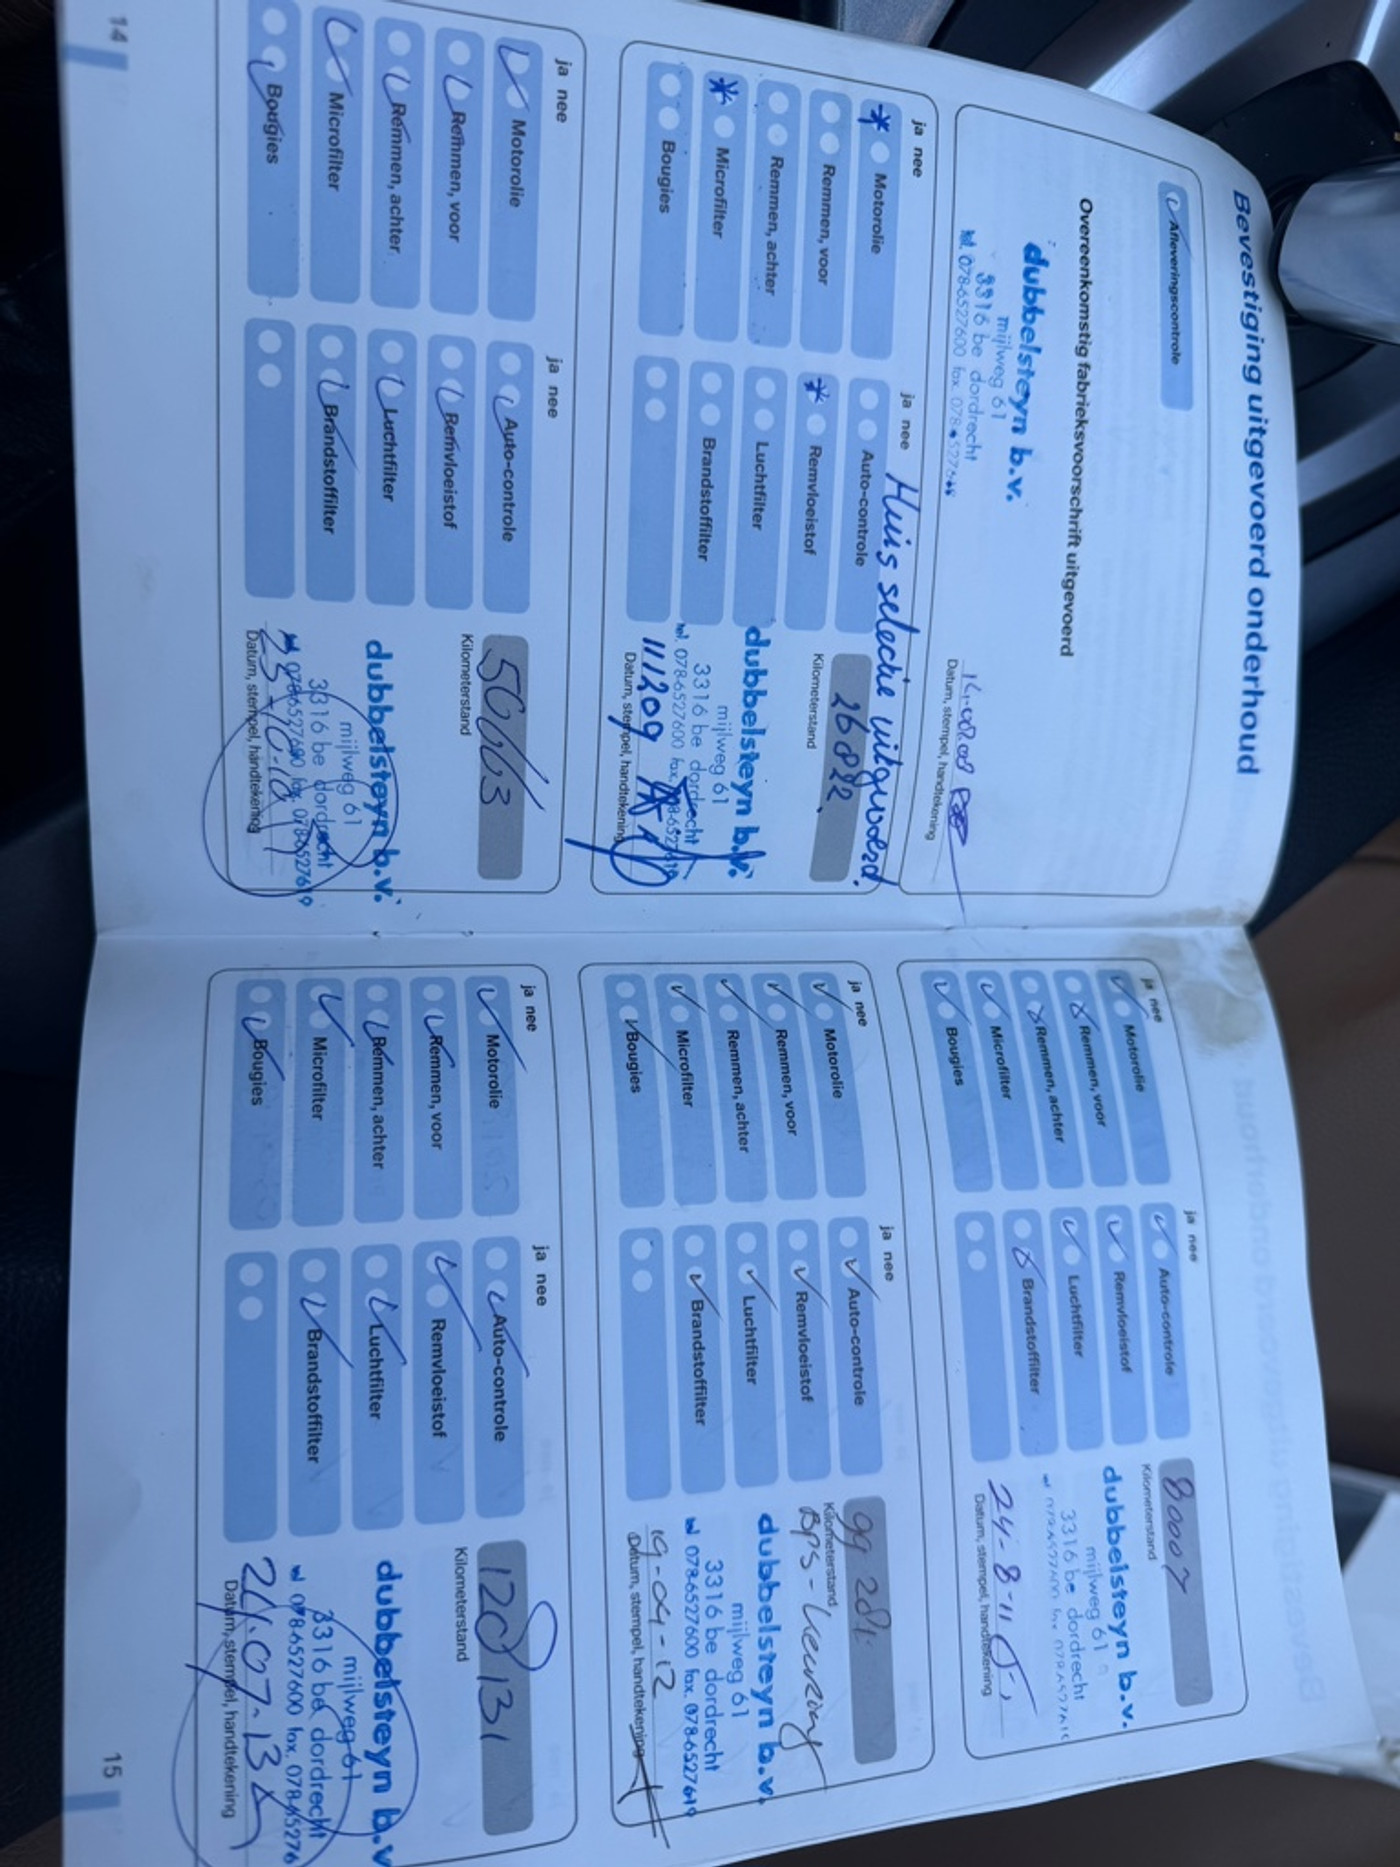 Bevestiging uitgevoerd onderhoud
Afleveringscontrole
Overeenkomstig fabrieksvoorschrift uitgevoerd
dubbelsteyn b.v.
mijlweg 61
3316 be dordrecht
tel. 078-6527600 fax. 078-
14.08.08
Datum, stempel, handtekening
Huis selectie uitgevoerd.
ja nee
ja nee
Motorolie
Auto-controle
Remmen, voor
Remvloeistof
Remmen, achter
Luchtfilter
Microfilter
Brandstoffilter
Bougies
26822
Kilometerstand
dubbelsteyn b.v.
mijlweg 61
3316 be dordrecht
tel. 078-6527600 fax.
111209
Datum, stempel, handtekening
ja nee
ja nee
Motorolie
Auto-controle
Remmen, voor
Remvloeistof
Remmen, achter
Luchtfilter
Microfilter
Brandstoffilter
Bougies
50663
Kilometerstand
dubbelsteyn b.v.
mijlweg 61
3316 be dordrecht
078-6527600 fax. 078-6527619
25-10-10
Datum, stempel, handtekening
14
ja nee
ja nee
Motorolie
Auto-controle
Remmen, voor
Remvloeistof
Remmen, achter
Luchtfilter
Microfilter
Brandstoffilter
Bougies
80007
Kilometerstand
dubbelsteyn b.v.
mijlweg 61
3316 be dordrecht
24-8-11
Datum, stempel, handtekening
ja nee
ja nee
Motorolie
Auto-controle
Remmen, voor
Remvloeistof
Remmen, achter
Luchtfilter
Microfilter
Brandstoffilter
Bougies
99281
Kilometerstand
dubbelsteyn b.v.
mijlweg 61
3316 be dordrecht
078-6527600 fax. 078-6527619
19-04-12
Datum, stempel, handtekening
ja nee
ja nee
Motorolie
Auto-controle
Remmen, voor
Remvloeistof
Remmen, achter
Luchtfilter
Microfilter
Brandstoffilter
Bougies
120131
Kilometerstand
dubbelsteyn b.v
mijlweg 61
3316 be dordrecht
078-6527600 fax. 078-65276
24.07-13
Datum, stempel, handtekening
15